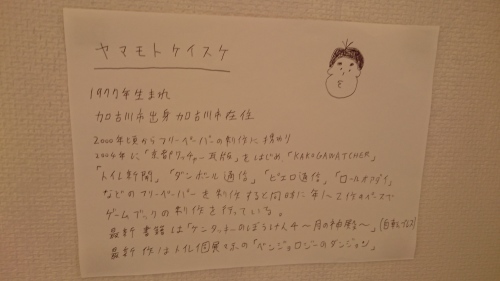 ヤマモトケイスケ
1977年生まれ
加古川市出身 加古川市在住
2000年頃からフリーペーパーの制作に携わり
2004年に「京都ドリッチャー」をはじめ、「KAKOGAWATCHER」
「トイレ新聞」「ダンボール通信」「ピエロ通信」「ロールオブデイ」
などのフリーペーパーを制作すると同時に年1〜2作のペースで
ゲームブックの制作を行っている。
最新書籍は「ケンタッキーのぼうけん4〜月の神殿〜」(自転パブ)
最新作はトイレ個展の為の「ベンジョロジーのダンジョン」